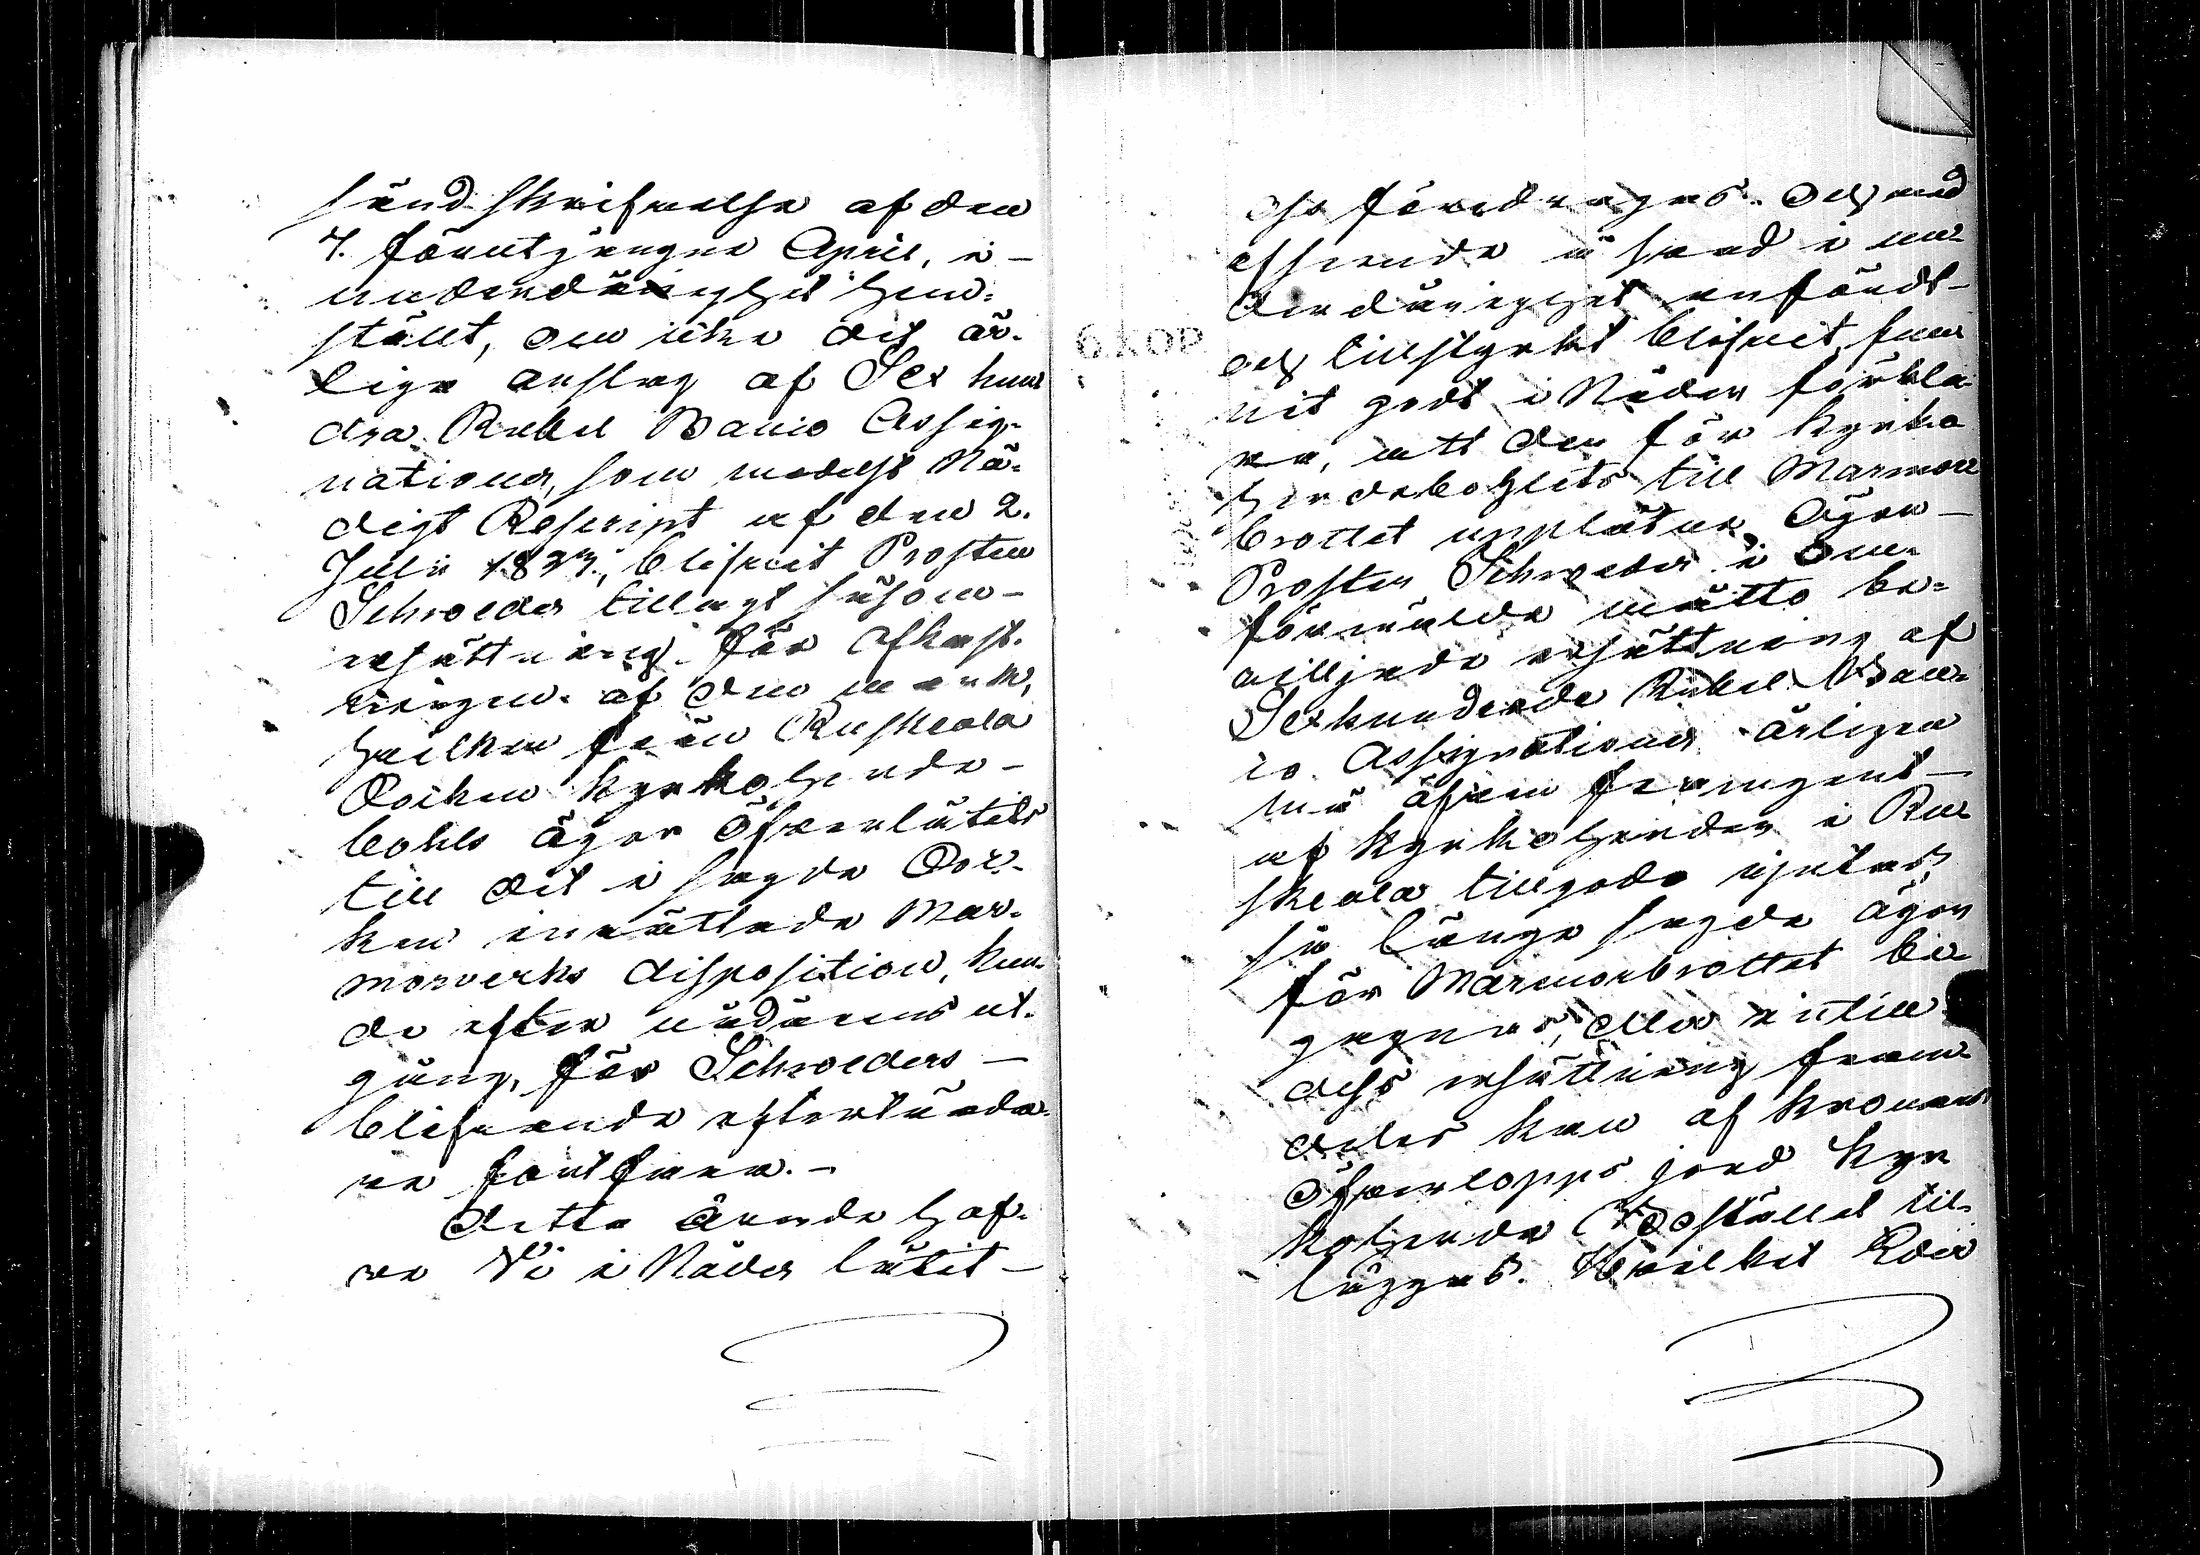 sänd skrifvelse af den
7. förutgångne April, i
underdånighet hem-
ställt, om icke det år-
liga anslag af Sex hun
dra Rubel Banco Assig-
nationer, som medelst Nå-
digt Rescript af den 2.
Julii 1827., blifvit Prosten
Schroeder tillagt såsom
ersättning för afkast-
ningen af den mark,
hvilken från Ruskeala
Socken Kyrkoherde-
bohls ägor öfverlåtits
till det i sagde Soc-
ken inrättade Mar-
morverks disposition, kun-
de efter nådårens ut-
gång, för Schroeders
blifvande efterträda-
re fortfara.
Detta ärende haf-
ve Vi i Nåder låtit
Oss föredragas. Och med
afseende å hvad i un-
derdånighet anfördt
och tillstyrkt blifvit, fun
nit godt i Nåder förkla-
ra, att den för Kyrko
herdebohlets till Marmor
brottet upplåtne ägor
Prosten Schroeder i om-
förmälde måtto be-
viljade ersättning af
Sexhundrade Rubel Ban-
co Assignationer årligen
må äfven framgent
af Kyrkoherden i Ru-
skeala tillgodo njutas,
så länge sagde ägor
för Marmorbrottet be-
gagnas, eller intill
dess ersättning fram-
deles kan af Kronans
öfverlopps jord Kyr
koherde Boställel till-
läggas. Hvilket Eder
6 KOP